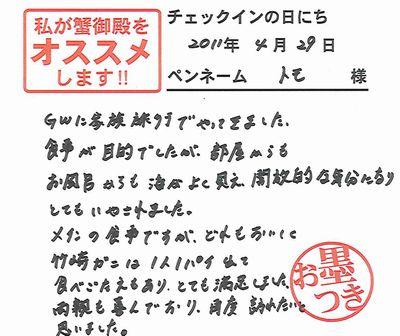 私が蟹御殿を
オススメ
します!!
チェックインの日にち
2011年 4月 29日
ペンネーム トモ 様
GWに家族旅行でやってきました。
食事が目的でしたが、部屋からも
お風呂からも海がよく見え、開放的な気分になり
とてもいやされました。
メインの食事ですが、どれもおいしく
竹崎ガニは1人1パイ出て
食べごたえもあり、とても満足しました。
両親も喜んでおり、再度訪れたいと
思いました。
お墨
つき